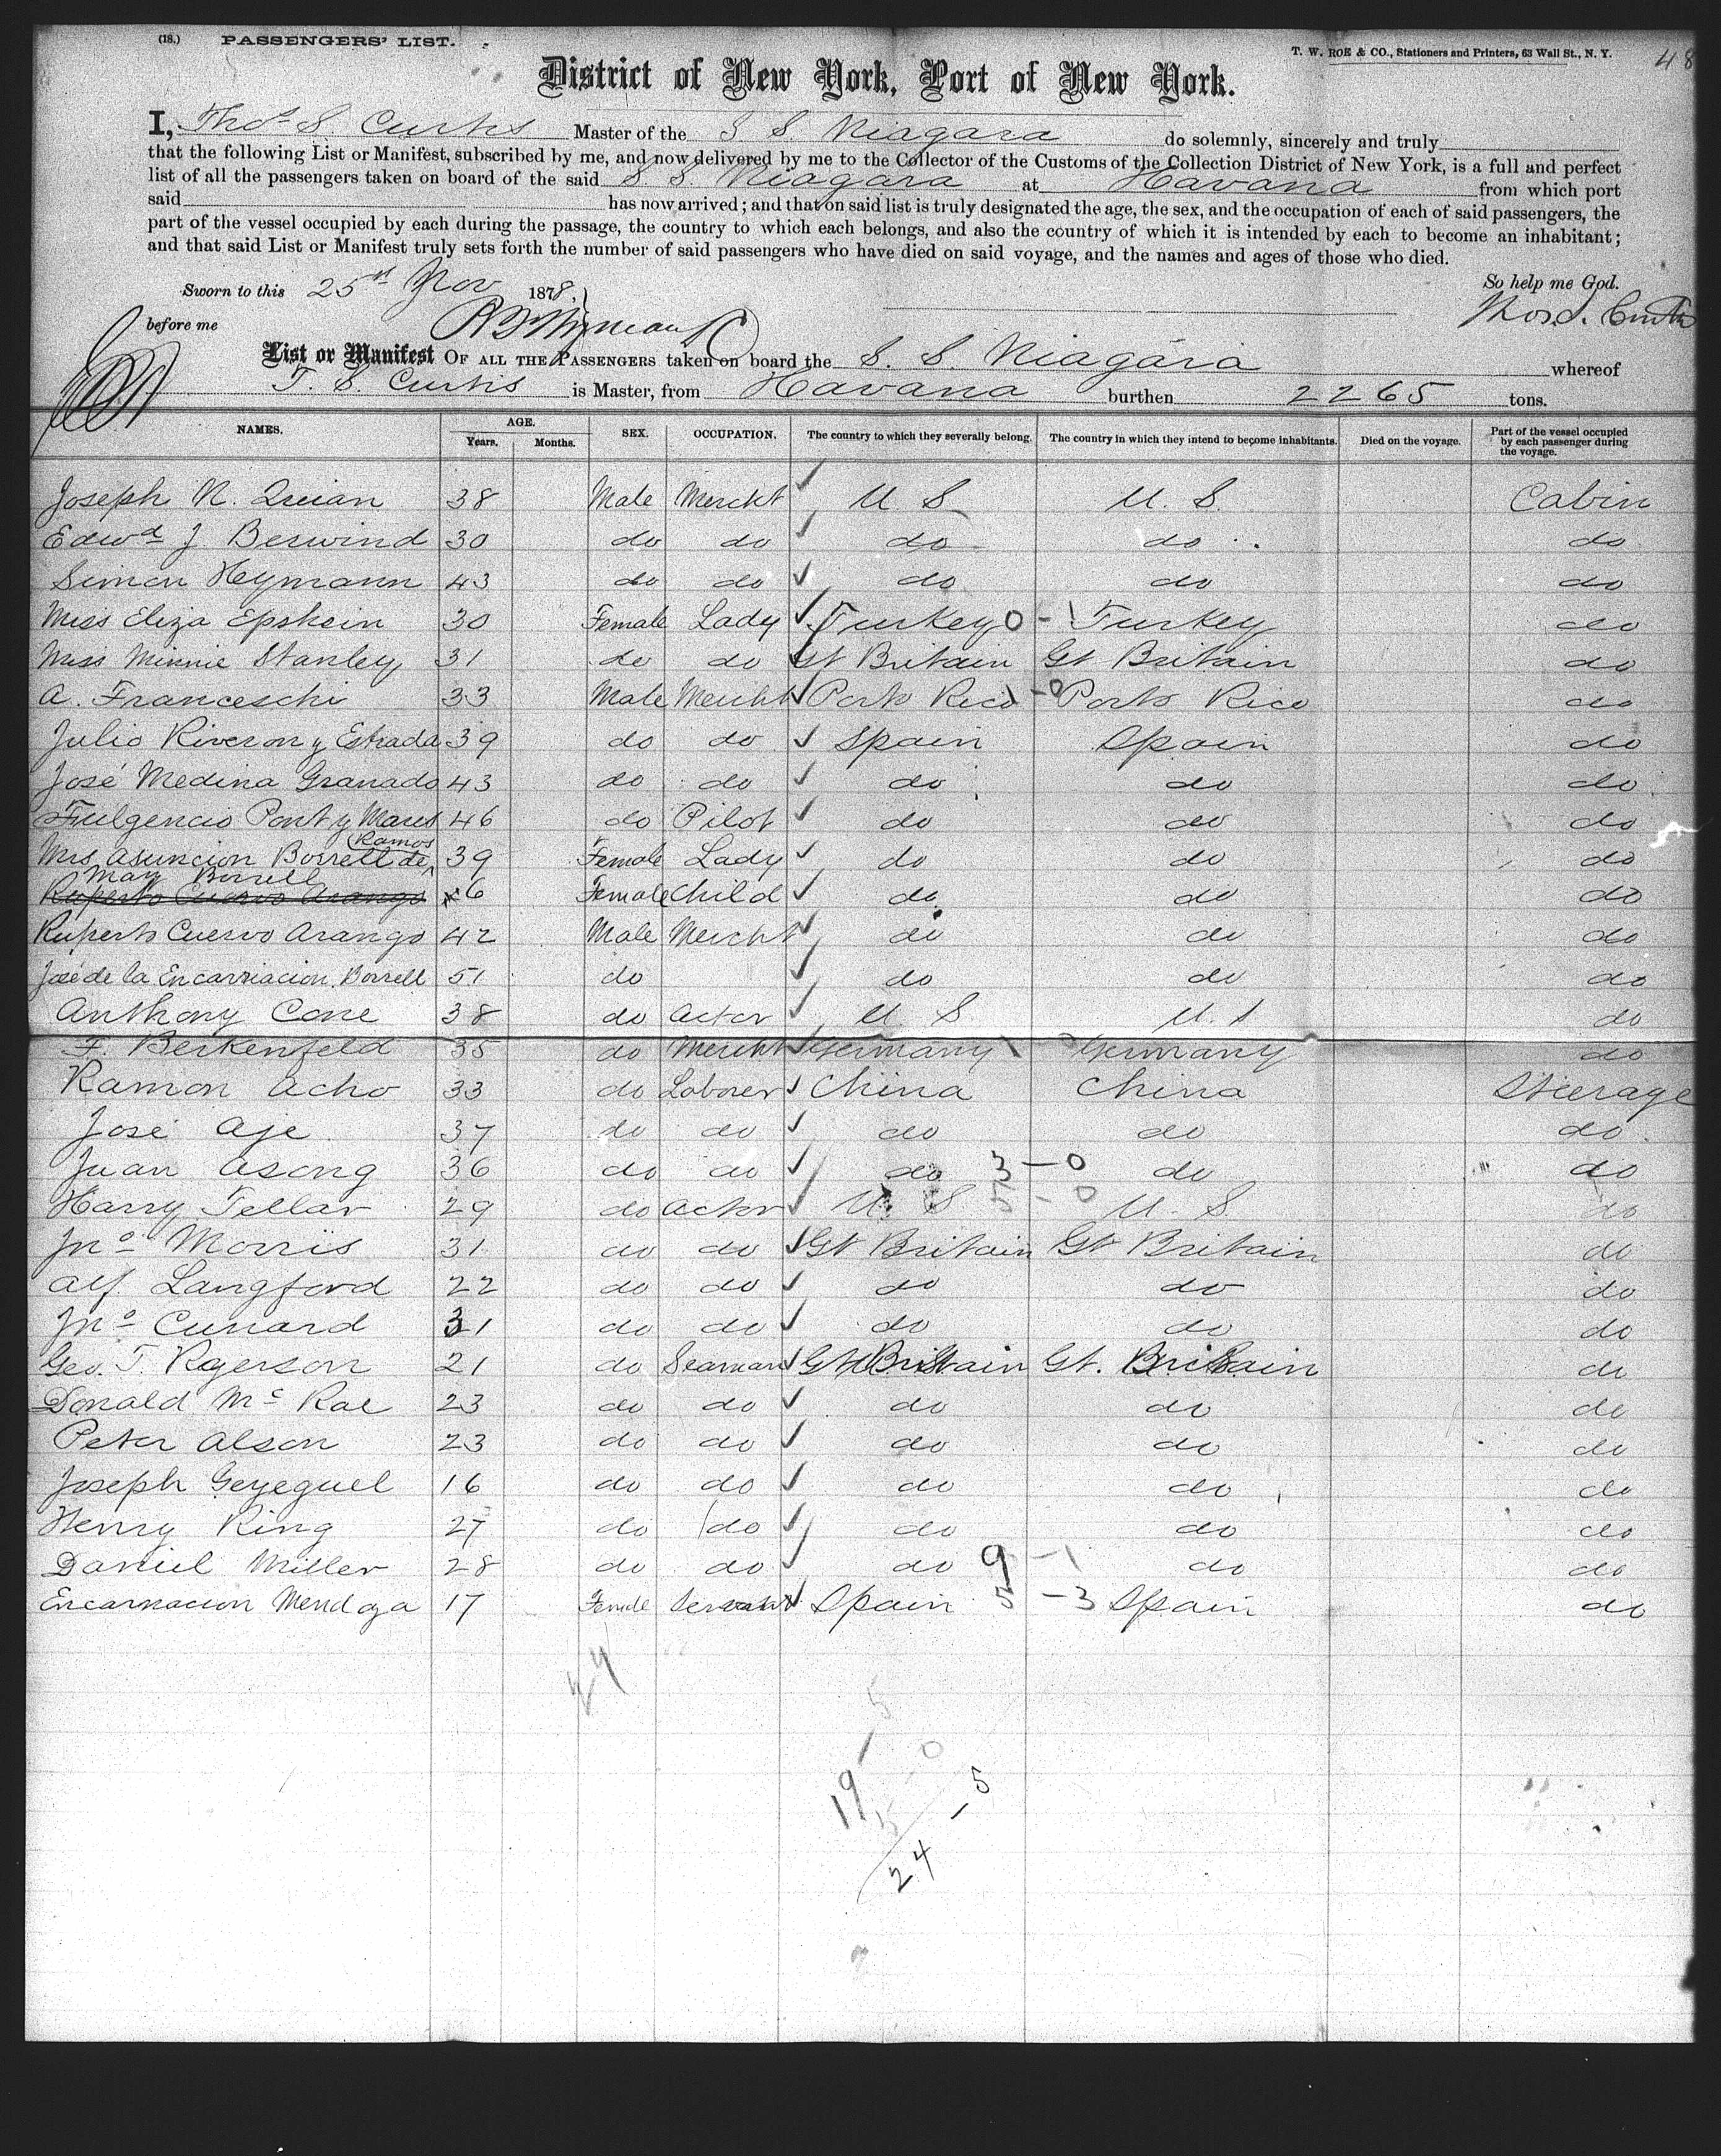 (18.) PASSENGERS' LIST.
T. W. ROE & CO., Stationers and Printers, 63 Wall St., N. Y.
48
District of New York, Port of New York.
I, Thos S. Curtis Master of the S S Niagara do solemnly, sincerely and truly
that the following List or Manifest, subscribed by me, and now delivered by me to the Collector of the Customs of the Collection District of New York, is a full and perfect
list of all the passengers taken on board of the said S. S. Niagara at Havana from which port
said has now arrived; and that on said list is truly designated the age, the sex, and the occupation of each of said passengers, the
part of the vessel occupied by each during the passage, the country to which each belongs, and also the country of which it is intended by each to become an inhabitant;
and that said List or Manifest truly sets forth the number of said passengers who have died on said voyage, and the names and ages of those who died.
So help me God.
Sworn to this 25th Nov 1878,
Thos. S. Curtis
before me
List or Manifest OF ALL THE PASSENGERS taken on board the S. S. Niagara whereof
T. S. Curtis is Master, from Havana burthen 2265 tons.
NAMES. AGE. Years. Months. SEX. OCCUPATION. The country to which they severally belong. The country in which they intend to become inhabitants. Died on the voyage. Part of the vessel occupied by each passenger during the voyage.
Joseph N. Quian 38 Male Mercht U S U. S. Cabin
Edwd J. Berwind 30 do do do do do
Simon Heymann 43 do do do do do
Miss Eliza Epshein 30 Female Lady Turkey 0 - 1 Turkey do
Miss Minnie Stanley 31 do do Gt Britain Gt Britain do
A. Franceschi 33 Male Mercht Porto Rico 1 - 0 Porto Rico do
Julio Riveron y Estrada 39 do do Spain Spain do
José Medina Granado 43 do do do do do
Fulgencio Pont y Mares 46 do Pilot do do do
Mrs Asuncion Borrell de Ramos 39 Female Lady do do do
May Borrell 6 Female Child do do do
Ruperto Cuervo Arango
Ruperto Cuervo Arango 42 Male Mercht do do do
José de la Encarnacion Borrell 51 do do do do
Anthony Cone 38 do Actor U S U. S do
F. Berkenfeld 35 do Mercht Germany Germany do
Ramon Acho 33 do Laborer China China Steerage
José Aje 37 do do do do do
Juan Asong 36 do do do 3 - 0 do do
Harry Tellar 29 do Actor U. S U. S. do
Jno Morris 31 do do Gt Britain Gt Britain do
Alf. Langford 22 do do do do do
Jno Cunard 31 do do do do do
Geo. T. Rgerson 21 do Seaman Gt Britain Gt. Britain do
Donald McRae 23 do do do do do
Peter Alson 23 do do do do do
Joseph Geyeguel 16 do do do do do
Henry King 27 do do do do do
Daniel Miller 28 do do do 9 - 1 do do
Encarnacion Mendoza 17 Female Servant Spain 5 - 3 Spain do
24
5
0
19
- 5
24